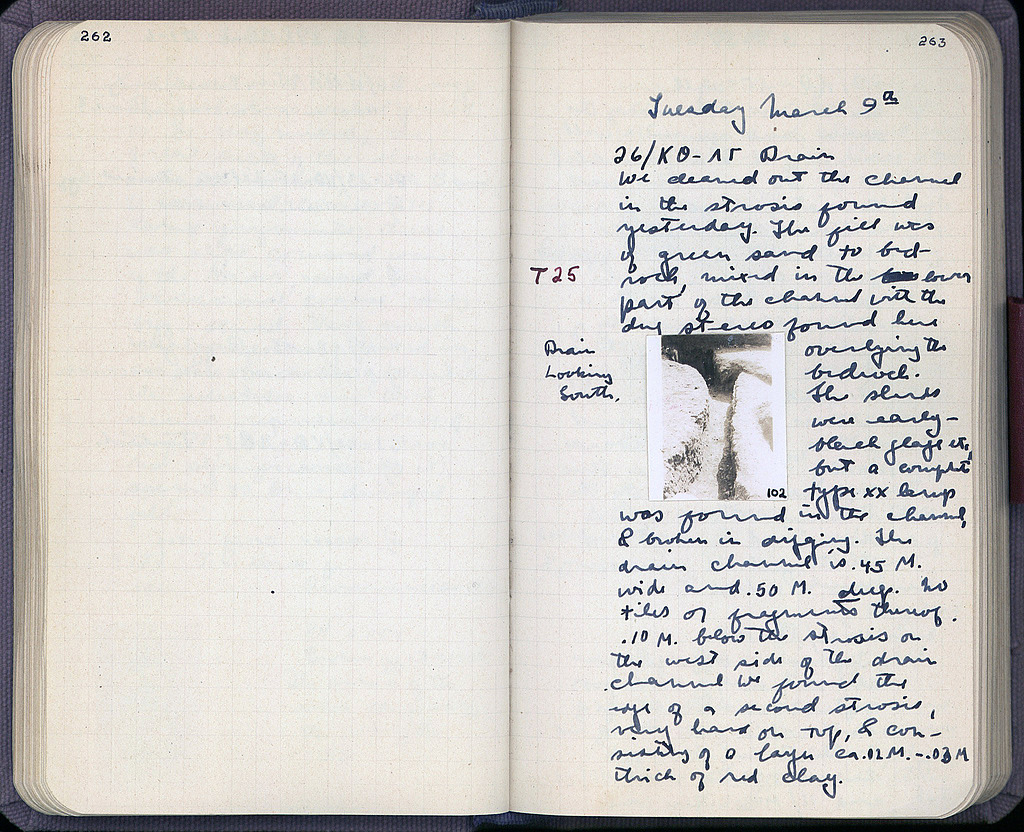 262
263
Tuesday March 9th
26/ΚΘ-ΛΓ Drain
We cleaned out the channel
in the strosis found
yesterday. The fill was
of green sand to bed-
T25
rock, mixed in the lower
part, of the channel with the
dug stereo found here
Drain
Looking
South.
overlying the
bedrock.
The sherds
were early -
black glaze etc,
but a complete
type XX lamp
102
was found in the channel,
& broken in digging. The
drain channel is .45 M.
wide and .50 M. deep. No
tiles or fragments thereof.
.10 M. below the strosis on
the west side of the drain
channel we found the
edge of a second strosis,
very hard on top, & con-
sisting of a layer ca .02 M. - .03 M
thick of red clay.